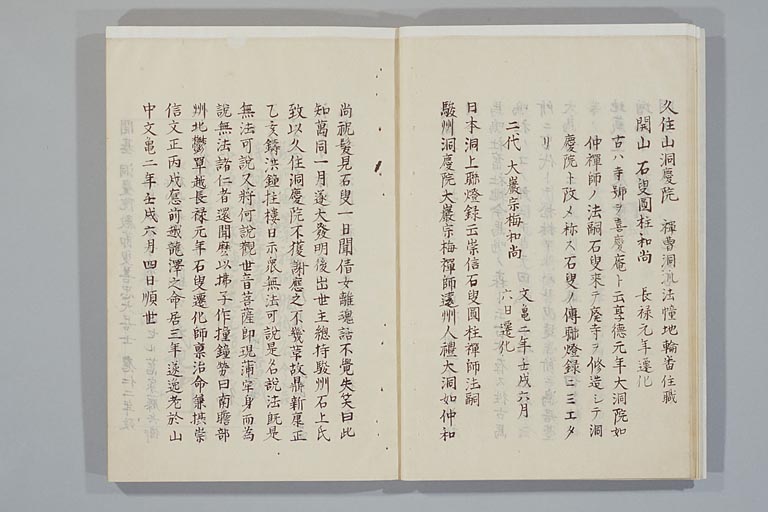 久住山洞慶院　禪曹洞派法幢地輪畨住職
開山　石叟圓柱和尚　長禄元年遷化
古ハ寺號ヲ喜慶庵ト云享德元年大洞院如
仲禪師ノ法嗣石叟來テ廢寺ヲ修造シテ洞
慶院ト改メ称ス石叟ノ傳聯燈録ニミエタリ
二代　大巖宗梅和尚　文亀二年壬戌六月
六日遷化
日本洞上聯燈録云崇信石叟圓柱禪師法嗣
駿州洞慶院大巖宗梅禪師遠州人禮大洞如仲和
尚祝髮見石叟一日聞倩女離魂話不覺失笑曰此
知萬同一月遂大發明後出世主總持駿州石上氏
致以久住洞慶院不獲謝應之不幾葦故鼎新康正
乙亥鑄洪鐘挂樓日示衆無法可說是名說法既是
無法可說又將何說觀世音菩薩即現蒲牢身而為
說無法諸仁者還聞麽以拂子作撞鐘勢曰南瞻部
州北鬱單越長禄元年石叟遷化師禀治命兼摂崇
信文正丙戌應前越龍澤之命居三年遂逸老於山
中文亀二年壬戌六月四日順世